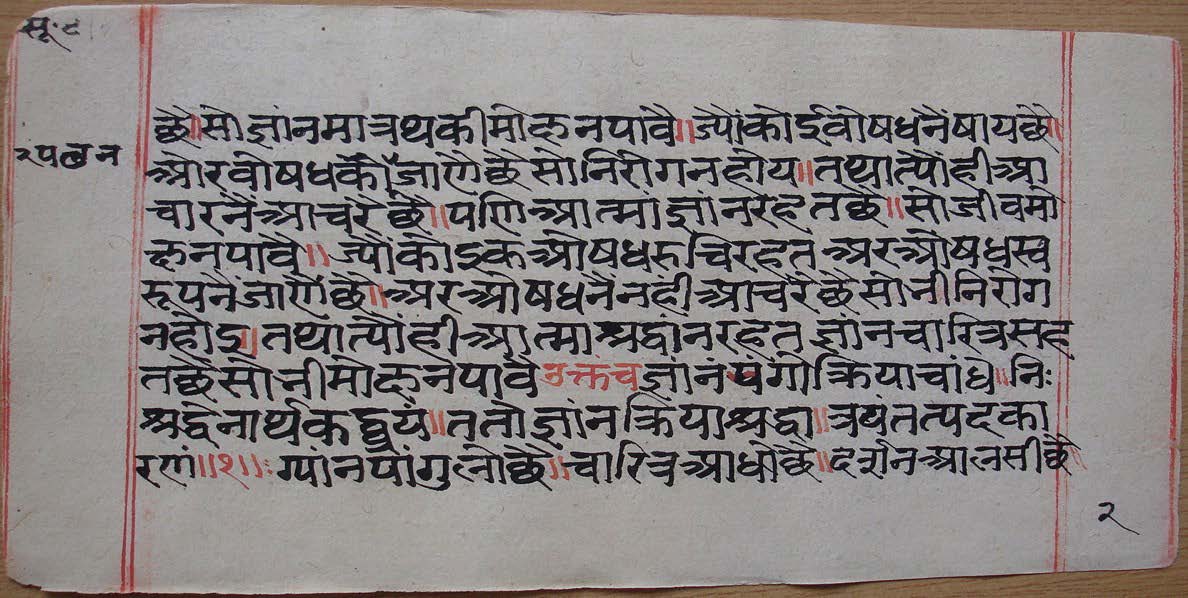 सू॰ ८
छै॥सो ज्ञांनमात्रथकीमोक्षनपावै॥ज्यौंकोईवोषधनैंषायछै॥
२पठन
आरवोषधकौंजाणैछैसोनिरोगनहोय॥तथात्यौंहीआ
चारनैंआचरैछै॥पणिआत्माज्ञांनरहतछै॥सोजीवमो
क्षनपावै॥ज्यौंकोइकओषधरुचिरहतअरओषधस्व
रूपनैजाणैंछै॥अरओषधनैनहीआचरैछैसोनीनिरोग
नहोइ॥तथात्यौंहीआत्माश्रद्धांनरहतज्ञांनचारित्रसह
तछैसोनीमोक्षनपावै उक्तंच ज्ञांनंपंगोक्रियाचांधे॥निः
श्रद्धेनार्थकद्वयं॥ततौज्ञांनक्रियाश्रद्धा॥त्रयंतत्पदका
रणं॥१॥ः ग्यांनपांगुलोछै॥चारित्रआधोछै॥दर्शनआलसीछै॥
२